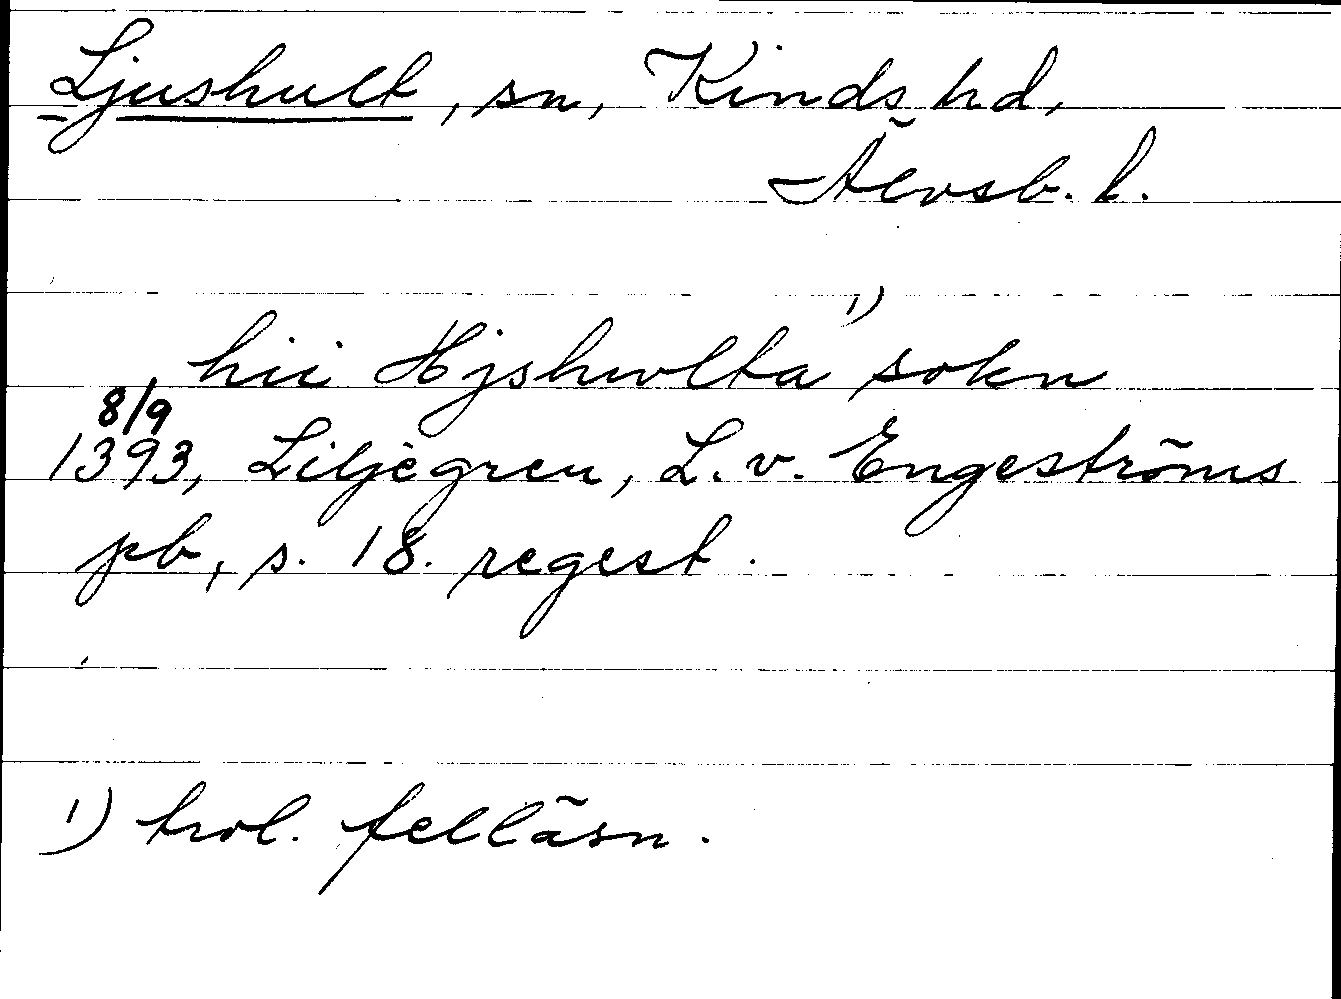 Ljushult, sn, Kinds hd,
Älvsb. l.
hii Hjshwlta 1) sokn
8/9
1393, Liljegren, L. v. Engeströms
pb, s. 18. regest.
1) trol. felläsn.